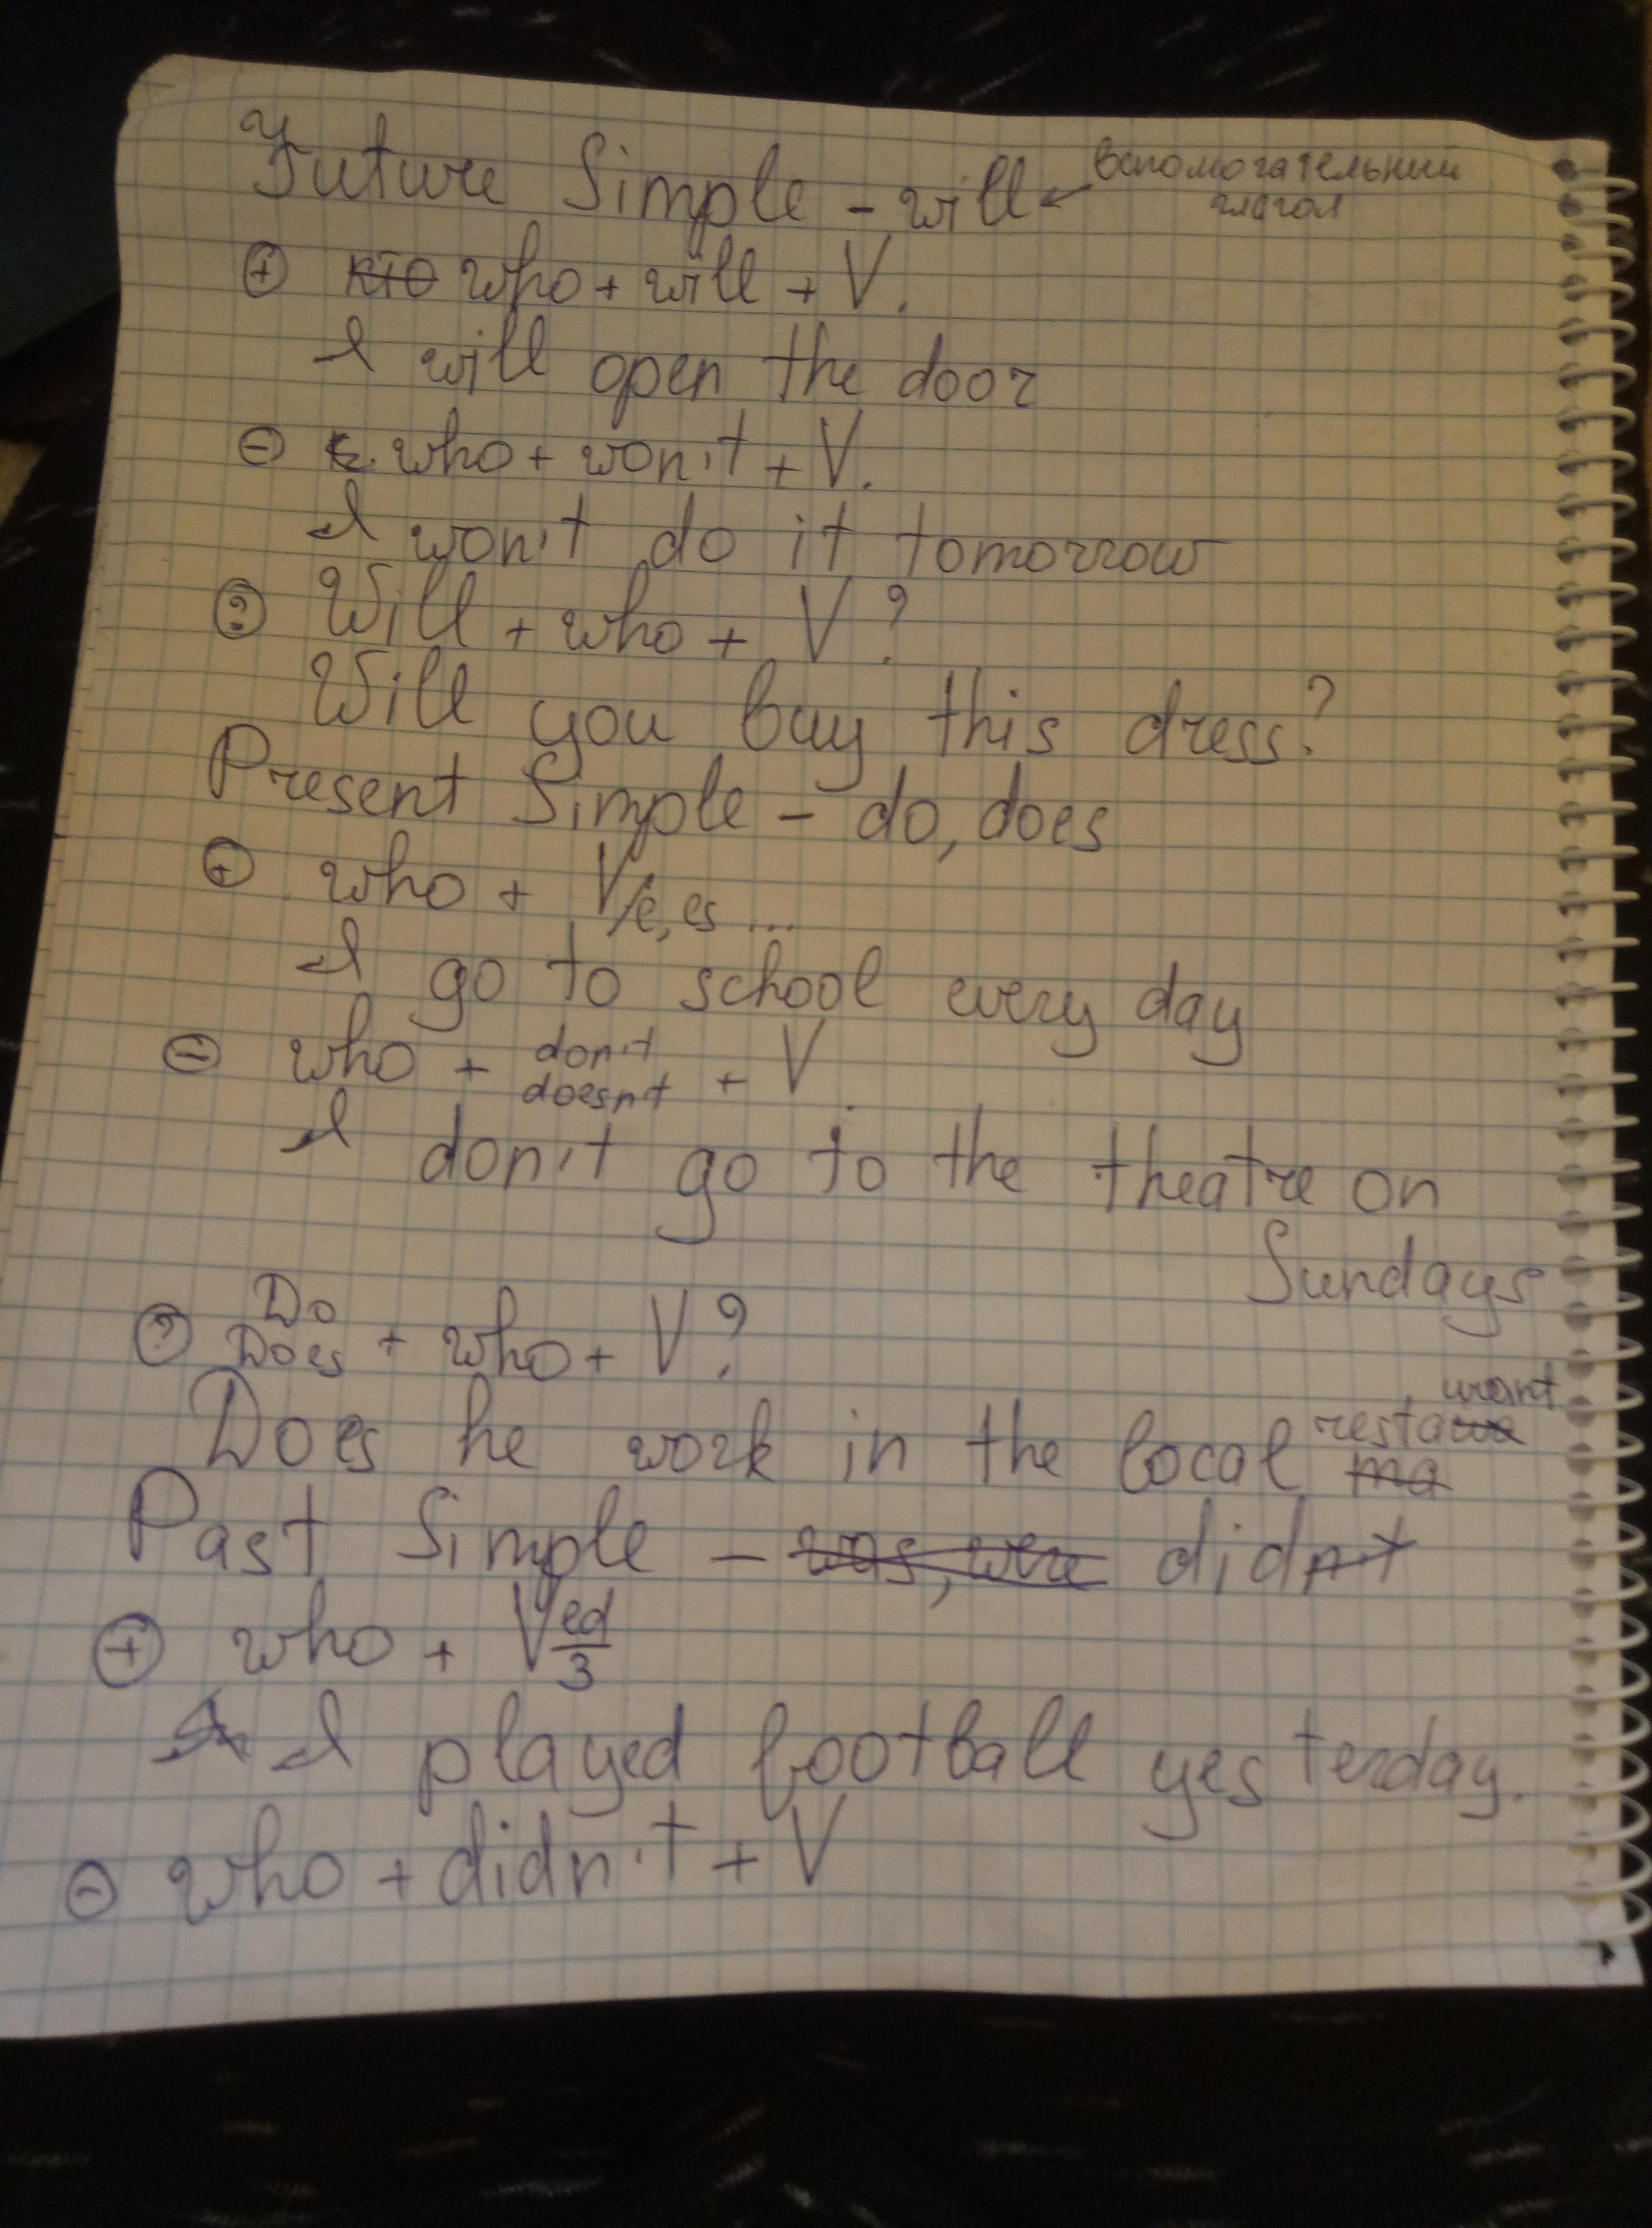 Future Simple - will ← вспомогательный
глагол
⊕ кто who + will + V.
I will open the door
⊖ who + won't + V.
I won't do it tomorrow
? Will + who + V?
Will you buy this dress?
Present Simple - do, does
⊕ who + V/e, es ...
I go to school every day
⊖ who + don't + V.
doesn't
I don't go to the theatre on
Sundays
? Do
Does + who + V?
urant
Does he work in the local resta
ma
Past Simple - was, were didn't
⊕ who + V ed/3
I played football yesterday.
⊖ who + didn't + V